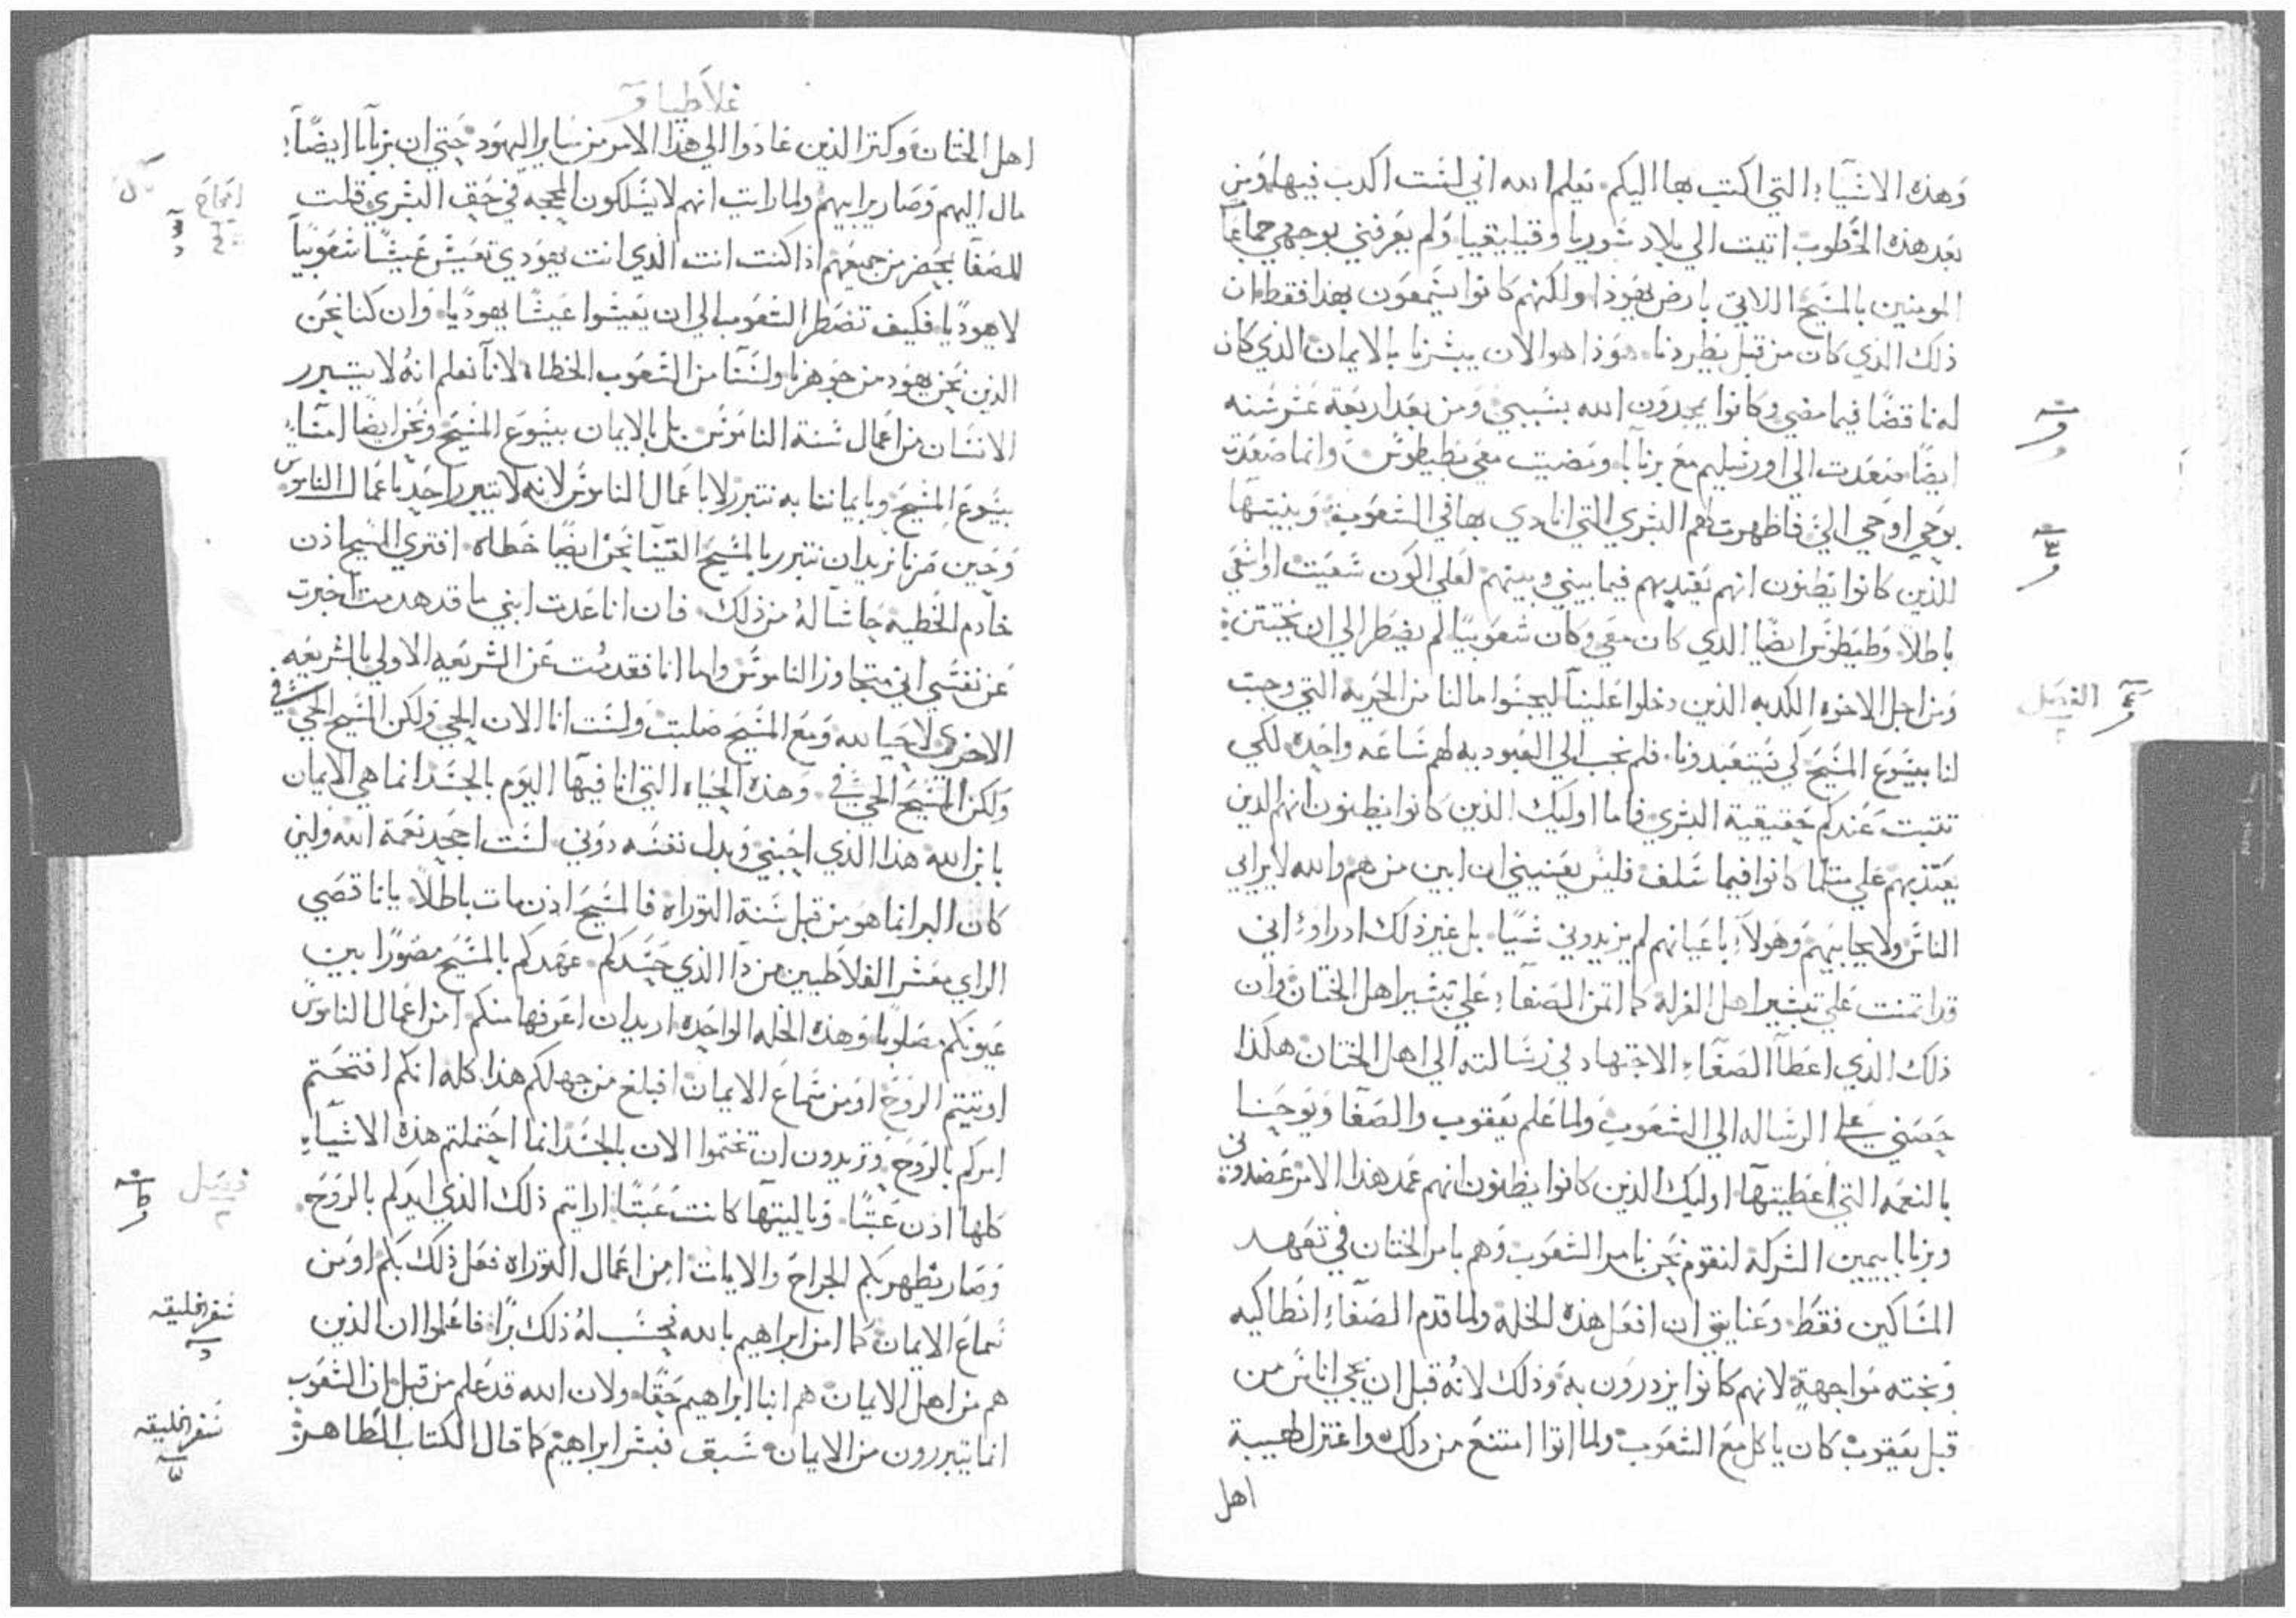 وهذه الاشياء التي اكتب بها اليكم يعلم الله اني لست اكدب فيها ومن
بعد هذه الخطوب اتيت الي بلاد سوريا وقياليقيا ولم يعرفني بوجهي جماعا
المومنين بالمسيح اللاتي بارض يهوذا ولكنهم كانوا يسمعون بهذا فقط ان
ذلك الذي كان من قبل يطردنا هوذا هو الان يبشرنا بالايمان الذي كان
له ناقضا فيما مضي وكانوا يمجدون الله بسببي ومن بعد اربعة عشر سنه
ايضا صعدت الي اورشليم مع برنابا ومضيت معي بطيطوس وانما صعدت
بوحي اوحي الي فاظهرت لهم البشري التي انادي بها في الشعوب وبينتها
للذين كانوا يظنون انهم يعتد بهم فيما بيني وبينهم لعلي اكون سعيت او اسعي
باطلا وطيطوس ايضا الدي كان معي وكان شعوبيا لم يضطر الي ان يختتن
ومن اجل الاخوه الكدبه الذين دخلوا علينا ليجسوا مالنا من الحريه التي وجبت
لنا بيسوع المسيح لكي يستعبدونا فلم نجب الي العبوديه لهم ساعه واحده لكي
تثبت عندكم حقيقية البشري فاما اوليك الذين كانوا يظنون انهم الدين
يعتد بهم علي مثلما كانوا فيما سلف فليس يعنيني ان ابين من هم والله لا يرايي
الناس ولا يحابيهم وهولاء باعيانهم لم يزيدوني شيا بل غير ذلك ادراوا اني
قد ايتمنت علي تبشير اهل الغرله كما اتمن الصفاء علي تبشير اهل الختان وان
ذلك الذي اعطا الصفاء الاجتهاد في رسالته الي اهل الختان هكذا
حصني علي الرساله الي الشعوب ولما علم يعقوب والصفا ويوحنا
بالنعمه التي اعطيتها اوليك الذين كانوا يظنون انهم عمد هذا الامر عضدوني
وبرنابا بيمين الشركه لنقوم نحن بامر الشعوب وهم بامر الختان في تعهد
المساكين فقط وعنايتي ان افعل هذه الخله ولما قدم الصفاء انطاكيه
وبخته مواجهة لانهم كانوا يزدرون به وذلك لانه قبل ان يجي اناس من
قبل يعقوب كان ياكل مع الشعوب ولما اتوا امتنع من دلك واعتزل لهيبة
اهل
غلاطيا
اهل الختان وكثر الذين عادوا الي هذا الامر من ساير اليهود حتي ان برنابا ايضا
مال اليهم وصار يرايهم ولما رايت انهم لا يسلكون المحجه في حق البشري قلت
للصفا بمحضر من جميعهم اذا كنت انت الذي انت يهودي تعيش عيشا شعوبيا
لا يهوديا فكيف تضطر الشعوب الي ان يعيشوا عيشا يهوديا وان كنا نحن
الذين نحن يهود من جوهرنا ولسنا من الشعوب الخطاه لانا نعلم انه لا يتبرر
الانسان من اعمال سنة الناموس بل بالايمان بيسوع المسيح ونحن ايضا امنا
بيسوع المسيح وبايماننا به نتبرر لا باعمال الناموس لانه لا يتبرر احد باعمال الناموس
وحين صرنا نريد ان نتبرر بالمسيح الفينا نحن ايضا خطاه افتري المسيح اذن
خادم الخطيه حاشا له من ذلك فان انا عدت ابني ما قد هدمت اخبرت
عن نفسي اني متجاوز الناموس واما انا فقد مت عن الشريعه الاولي بالشريعه
الاخري لاحيا لله ومع المسيح صلبت ولست انا الان الحي ولكن المسيح الحي في
ولكن المسيح الحي في وهذه الحياه التي انا فيها اليوم بالجسد انما هي الايمان
بابن الله هذا الذي احبني وبدل نفسه دوني لست اجحد نعمة الله ولين
كان البر انما هو من قبل سنة التوراه فالمسيح اذن مات باطلا يا ناقصي
الراي معشر الغلاطيين من ذا الذي حسدكم عهدكم بالمسيح مصورا بين
عيونكم مصلوبا وهذه الخله الواحده اريد ان اعرفها منكم امن اعمال الناموس
اوتيتم الروح او من سماع الايمان افبلغ من جهلكم هذا كله انكم افتتحتم
امركم بالروح وتريدون ان تختموا الان بالجسد انما احتملتم هذه الاشياء
كلها اذن عبثا وياليتها كانت عبثا ارايتم ذلك الذي ايدكم بالروح
وصار يظهر بكم الجراح والايات امن اعمال التوراه فعل ذلك بكم او من
سماع الايمان كما امن ابراهيم بالله فحسب له ذلك برا فاعلموا ان الذين
هم من اهل الايمان هم ابنا ابراهيم حقا ولان الله قد علم من قبل ان الشعوب
انما يتبررون من الايمان سبق فبشر ابراهيم كما قال الكتاب الطاهر
الفصل
فصل
سفر الخليقه
سفر الخليقه